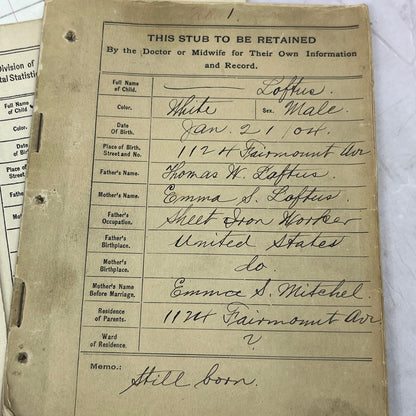 1
THIS STUB TO BE RETAINED
By the Doctor or Midwife for Their Own Information
and Record.
Full Name of Child. —— Loftus.
Color. White Sex. Male.
Date Of Birth. Jan. 21/04.
Place of Birth, Street and No. 1124 Fairmount Ave
Father's Name. Thomas W. Loftus.
Mother's Name. Emma S. Loftus.
Father's Occupation. Sheet Iron Worker
Father's Birthplace. United States
Mother's Birthplace. do.
Mother's Name Before Marriage. Emmce S. Mitchel.
Residence of Parents. 1124 Fairmount Ave
Ward of Residence. ?
Memo.: Still born.
Division of
tal Statistic
Full Name of Child
Color.